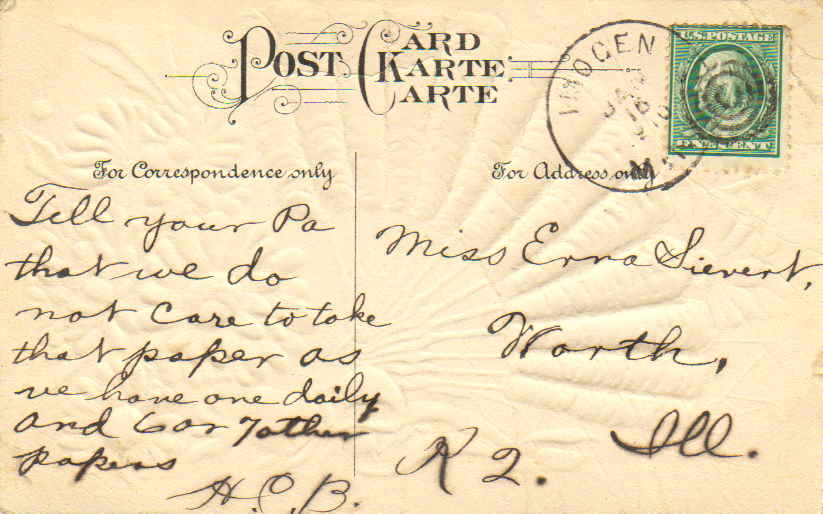 POST CARD
KARTE
CARTE
IMOGENE
JAN
18
1910
U.S. POSTAGE
ONE CENT
For Correspondence only
For Address only
Tell your Pa
that we do
not care to take
that paper as
we have one daily
and 6 or 7 other
papers
H.C.B.
Miss Erna Sievert,
Worth,
Ill.
R 2.